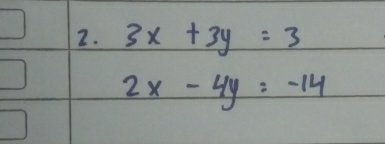 2. 3x + 3y = 3
2x - 4y = -14